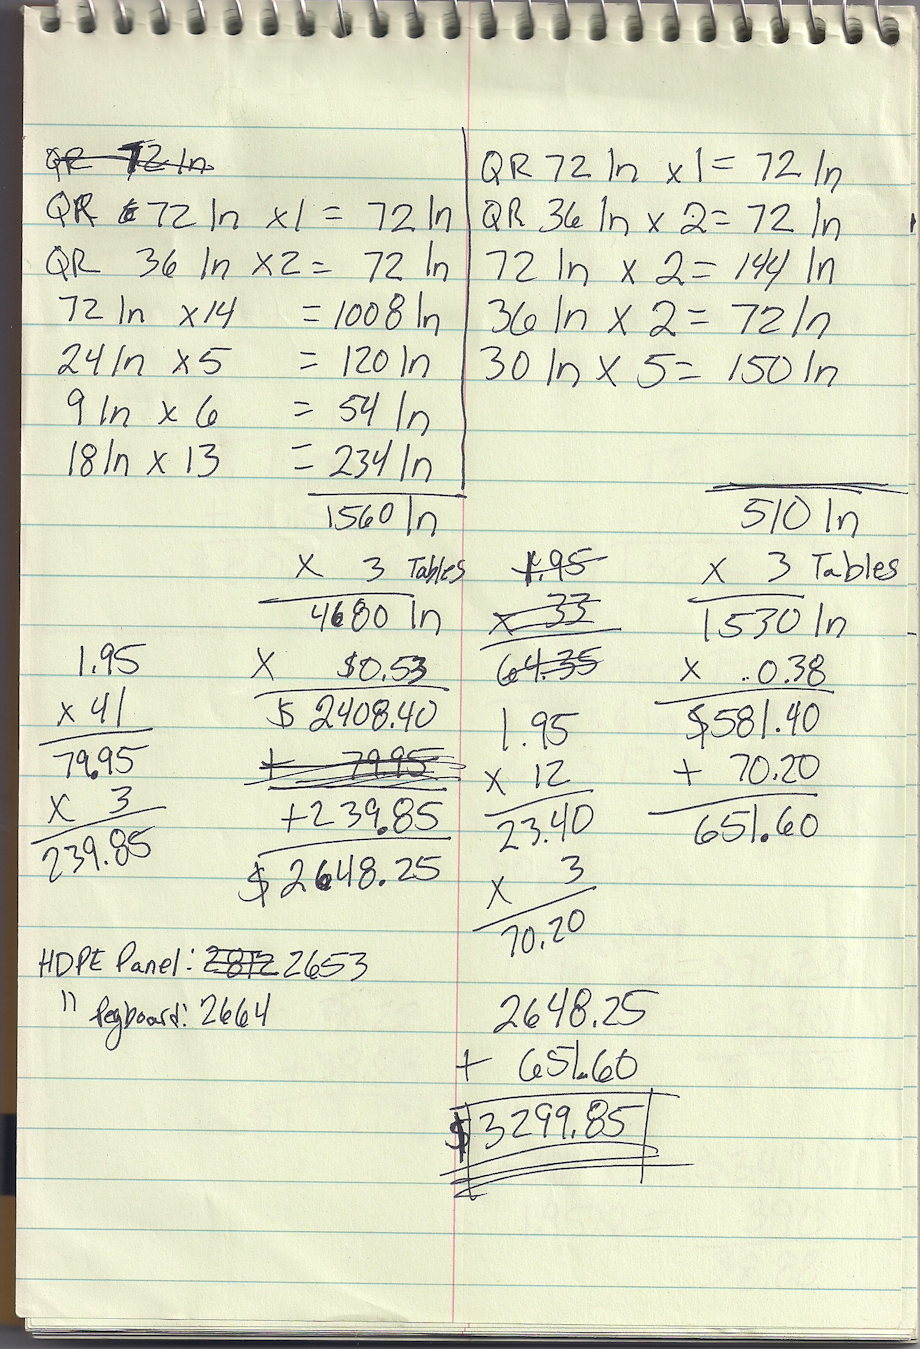 QR 72 In
QR 72 In x1 = 72 In
QR 36 In x2 = 72 In
72 In x14 = 1008 In
24 In x5 = 120 In
9 In x 6 = 54 In
18 In x 13 = 234 In
1560 In
x 3 Tables
4680 In
x $0.53
$ 2408.40
+ 79.95
+239.85
$ 2648.25
1.95
x 41
79.95
x 3
239.85
HDPE Panel: 2812 2653
" Pegboard: 2664
QR 72 In x1 = 72 In
QR 36 In x 2 = 72 In
72 In x 2 = 144 In
36 In x 2 = 72 In
30 In x 5 = 150 In
510 In
x 3 Tables
1530 In
x .0.38
$581.40
+ 70.20
651.60
1.95
x 33
64.35
1.95
x 12
23.40
x 3
70.20
2648.25
+ 651.60
$ 3299.85